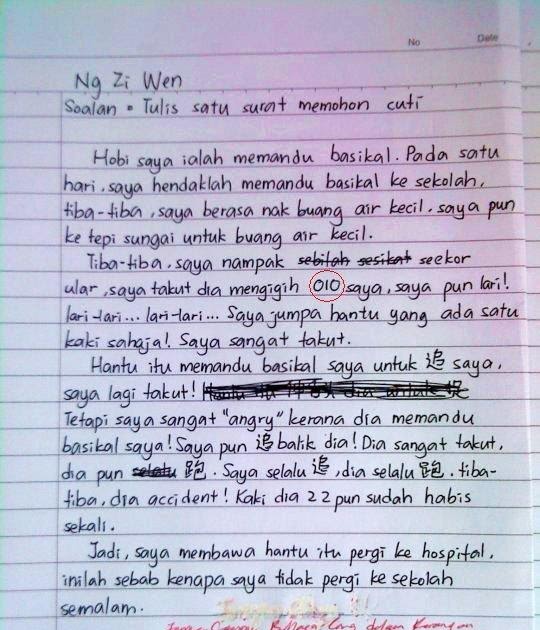 No
Date
Ng Zi Wen
Soalan = Tulis satu surat memohon cuti
Hobi saya ialah memandu basikal. Pada satu
hari, saya hendaklah memandu basikal ke sekolah,
tiba-tiba, saya berasa nak buang air kecil, saya pun
ke tepi sungai untuk buang air kecil.
Tiba-tiba, saya nampak sebilah sesikat seekor
ular, saya takut dia mengigih 010 saya, saya pun lari!
lari-lari... lari-lari... Saya jumpa hantu yang ada satu
kaki sahaja! Saya sangat takut.
Hantu itu memandu basikal saya untuk 追 saya,
saya lagi takut!
Tetapi saya sangat "angry" kerana dia memandu
basikal saya! Saya pun 追 balik dia! Dia sangat takut,
dia pun selalu 跑. Saya selalu 追, dia selalu 跑. tiba-
tiba, dia accident! Kaki dia 22 pun sudah habis
sekali.
Jadi, saya membawa hantu itu pergi ke hospital,
inilah sebab kenapa saya tidak pergi ke sekolah
semalam.